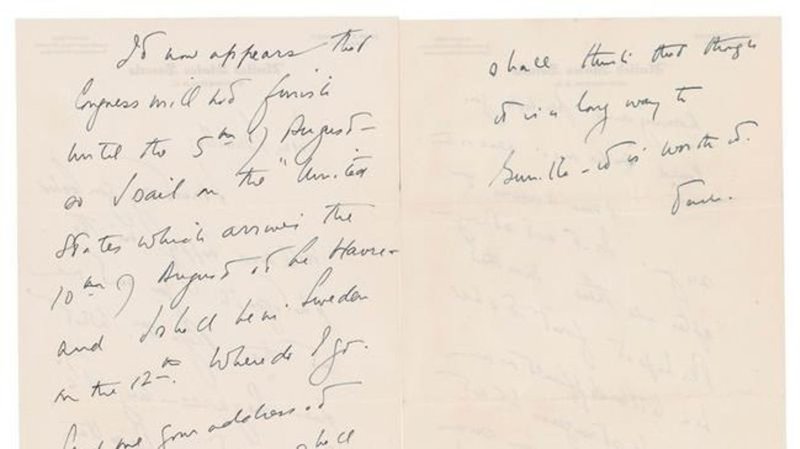 It now appears that
Congress will not finish
until the 5th of August -
so I sail on the "United
States which arrives the
10th of August at Le Havre -
and I shall be in Sweden
on the 12th. Where do I go.
Send me your address at
shall
shall think that though
it is a long way to
Gunilla - it is worth it.
Jack.
United States Senate